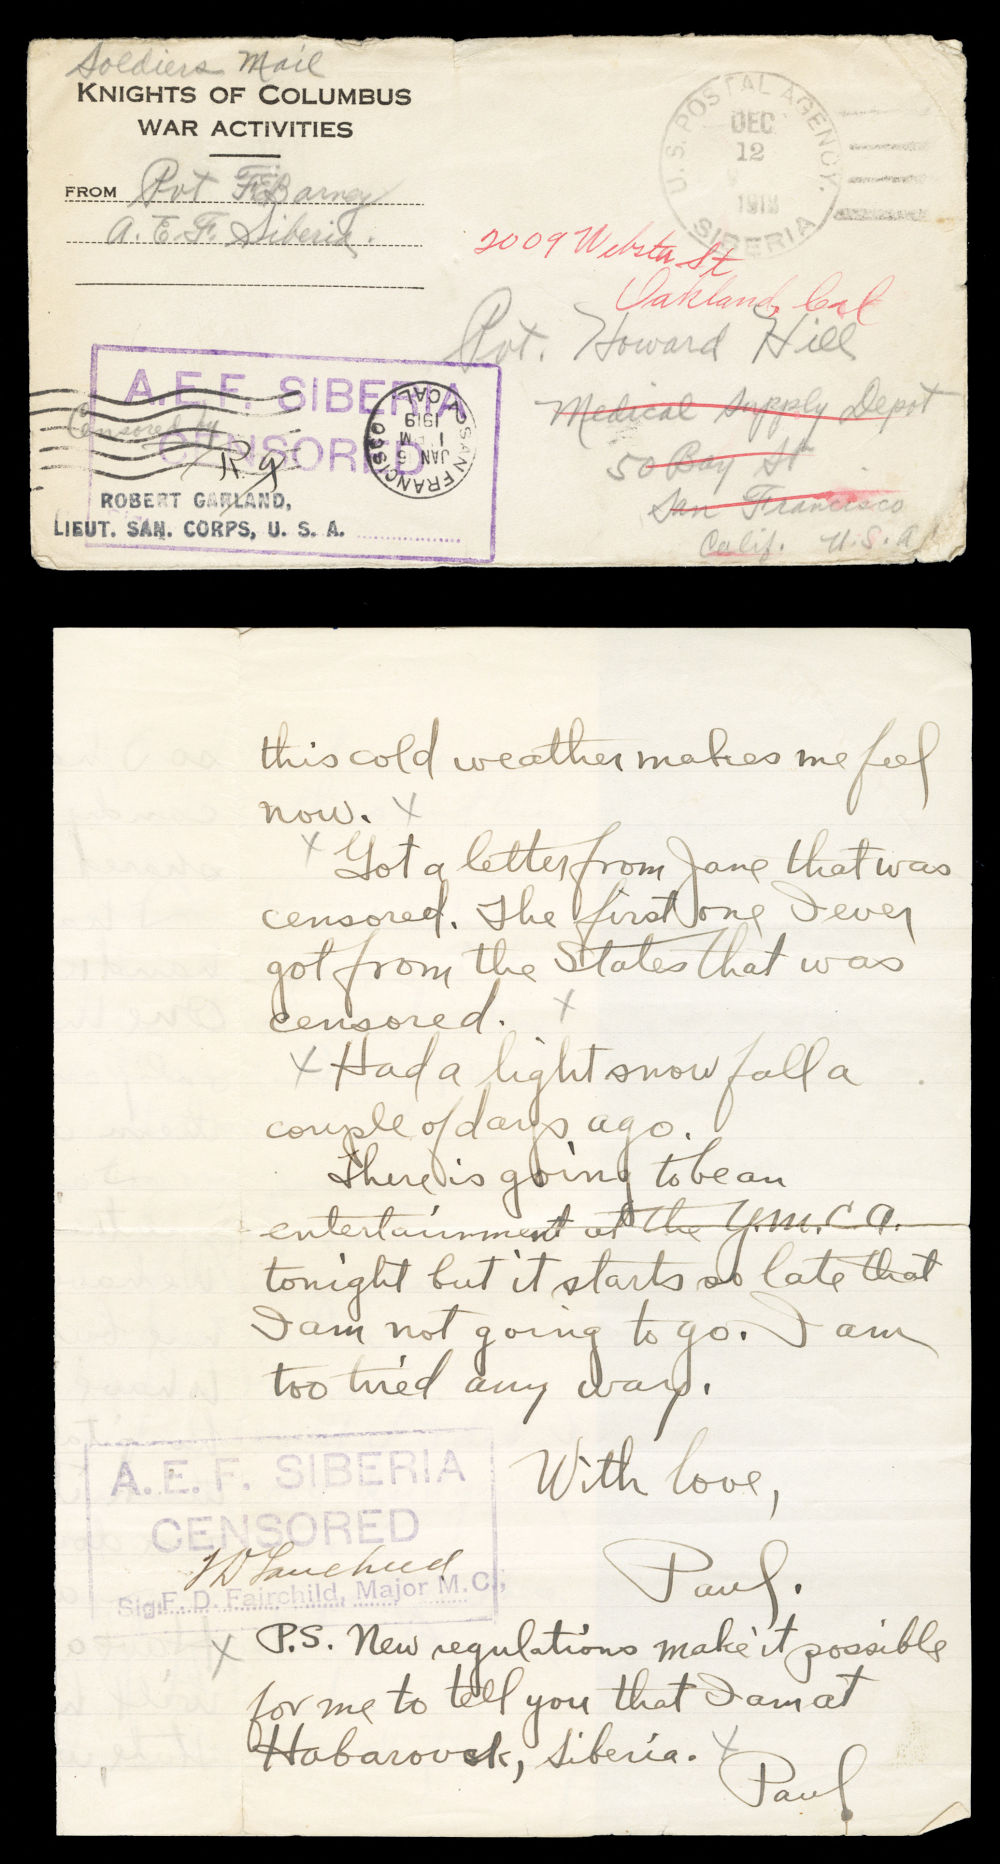 Soldiers Mail
KNIGHTS OF COLUMBUS
WAR ACTIVITIES
FROM Pvt F. E. Barney
A. E. F. Siberia.
U. S. POSTAL AGENCY.
DEC
12
SIBERIA
2009 Webster St
Oakland, Cal
Pvt. Howard Hill
Medical Supply Depot
50 Bay St
San Francisco
Calif. U.S.A.
A.E.F. SIBERIA
CENSORED
Censored by
ROBERT GARLAND,
LIEUT. SAN. CORPS, U. S. A.
SAN FRANCISCO
CAL.
JAN 5
1 PM
1919
this cold weather makes me feel
now. X
X Got a letter from Jane that was
censored. The first one I ever
got from the States that was
censored. X
X Had a light snow fall a
couple of days ago.
There is going to be an
entertainment at the Y.M.C.A.
tonight but it starts so late that
I am not going to go. I am
too tired any way.
With love,
Paul.
A.E.F. SIBERIA
CENSORED
Sig. F. D. Fairchild, Major M.C.,
X P.S. New regulations make it possible
for me to tell you that I am at
Habarovsk, Siberia. X
Paul